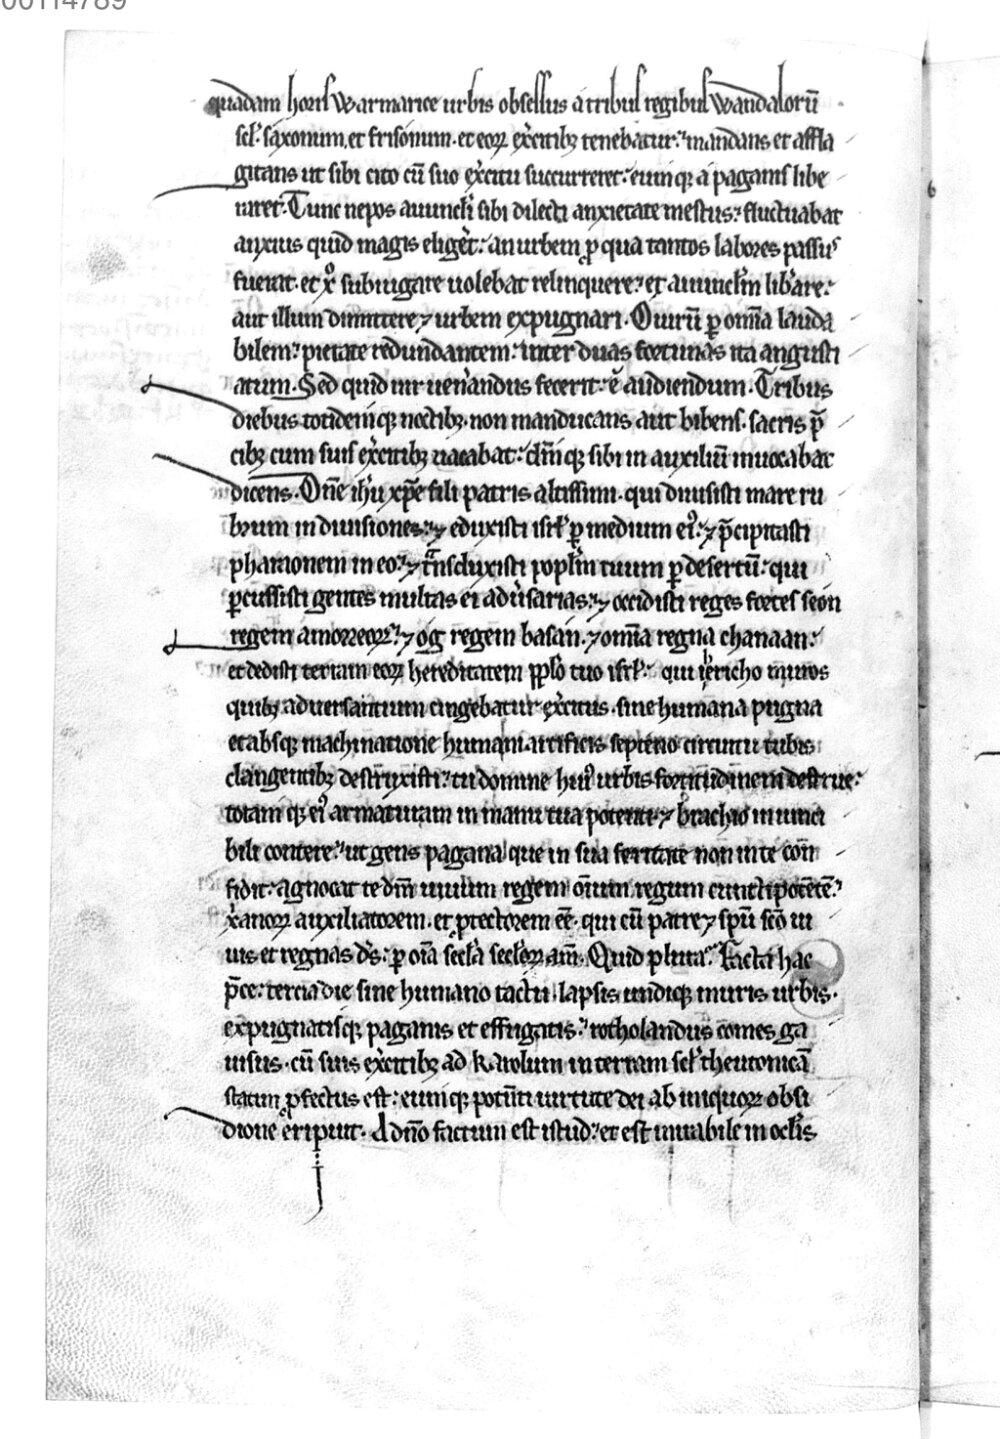 00114789
quadam horis Warmarice urbis obsessus a tribus regibus Wandalorū
scl͛. saxonum. et frisonum. et eoꝝ ex͛citibꝫ tenebatur. mandans et affla
gitans ut sibi cito cū suo ex͛citu succurreret. eumqꝫ a paganis libe
raret. Tunc nepos auunc̄li sibi dilecti anxietate mestus. fluctuabat
anxius quid magis eliget͛. an urbem ꝓ qua tantos labores passus
fuerat. et xͦ subiugare uolebat relinquere. et auuncl̄m lib͛are.
aut illum dimittere ⁊ urbem expugnari. O uirū ꝑ om̄ia lauda
bilem. pietate redundantem. inter duas fortunas ita angusti
atum. Sed quid uir uen͛andus fecerit. ē audiendum. Tribus
diebus totidemqꝫ noctibꝫ. non manducans aut bibens. sacris p̄
cibꝫ cum suis ex͛citibꝫ uacabat. dn̄mqꝫ sibi in auxiliū inuocabat
dicens. Dn̄e ih̄u xp̄e fili patris altissimi. qui diuisisti mare ru
brum in diuisiones. ⁊ eduxisti isrl̄ ꝑ medium ei᷒. ⁊ p̄cipitasti
pharaonem in eo. ⁊ tͣnsduxisti popl̄m tuum ꝑ desertū. qui
ꝑcussisti gentes multas ei adu͛sarias. ⁊ occidisti reges fortes seon
regem amorreoꝝ. ⁊ og regem basan. ⁊ omīa regna chanaan.
et dedisti terram eoꝝ hereditatem ppl̄o tuo isrl̄. qui iericho muros
quibꝫ aduersantium cingebatur ex͛citus. sine humana pugna
et absqꝫ machinatione humani artificis septeno circuitu tubis
clangentibꝫ destruxisti. tu domine hui᷒ urbis fortitudinem destrue.
totamqꝫ ei᷒ armaturam in manu tua potenti ⁊ brachio inuinci
bili contere. ut gens pagana que in sua feritate non in te con
fidit. agnocat te dm̄ uiuum regem om̄ium regum cunctipotētē.
x͛anoꝝ auxiliatorem. et ꝓtectorem eē. qui cū patre ⁊ sp̄u sc̄o ui
uis et regnas ds̄. ꝑ oīa sec̄la sec̄loꝝ am̄. Quid plura. Facta hac
p̄ce. tercia die sine humano tactu. lapsis undiqꝫ muris urbis.
expugnatisqꝫ paganis et effugatis. rotholandus comes ga
uisus. cū suis ex͛citibꝫ ad Karolum in terram scl͛ theutonicā
statim ꝓfectus est. eumqꝫ potūti uirtute dei ab iniquoꝝ obsi
dione eripuit. A dn̄o factum est istud. et est mirabile in ocl̄is
6